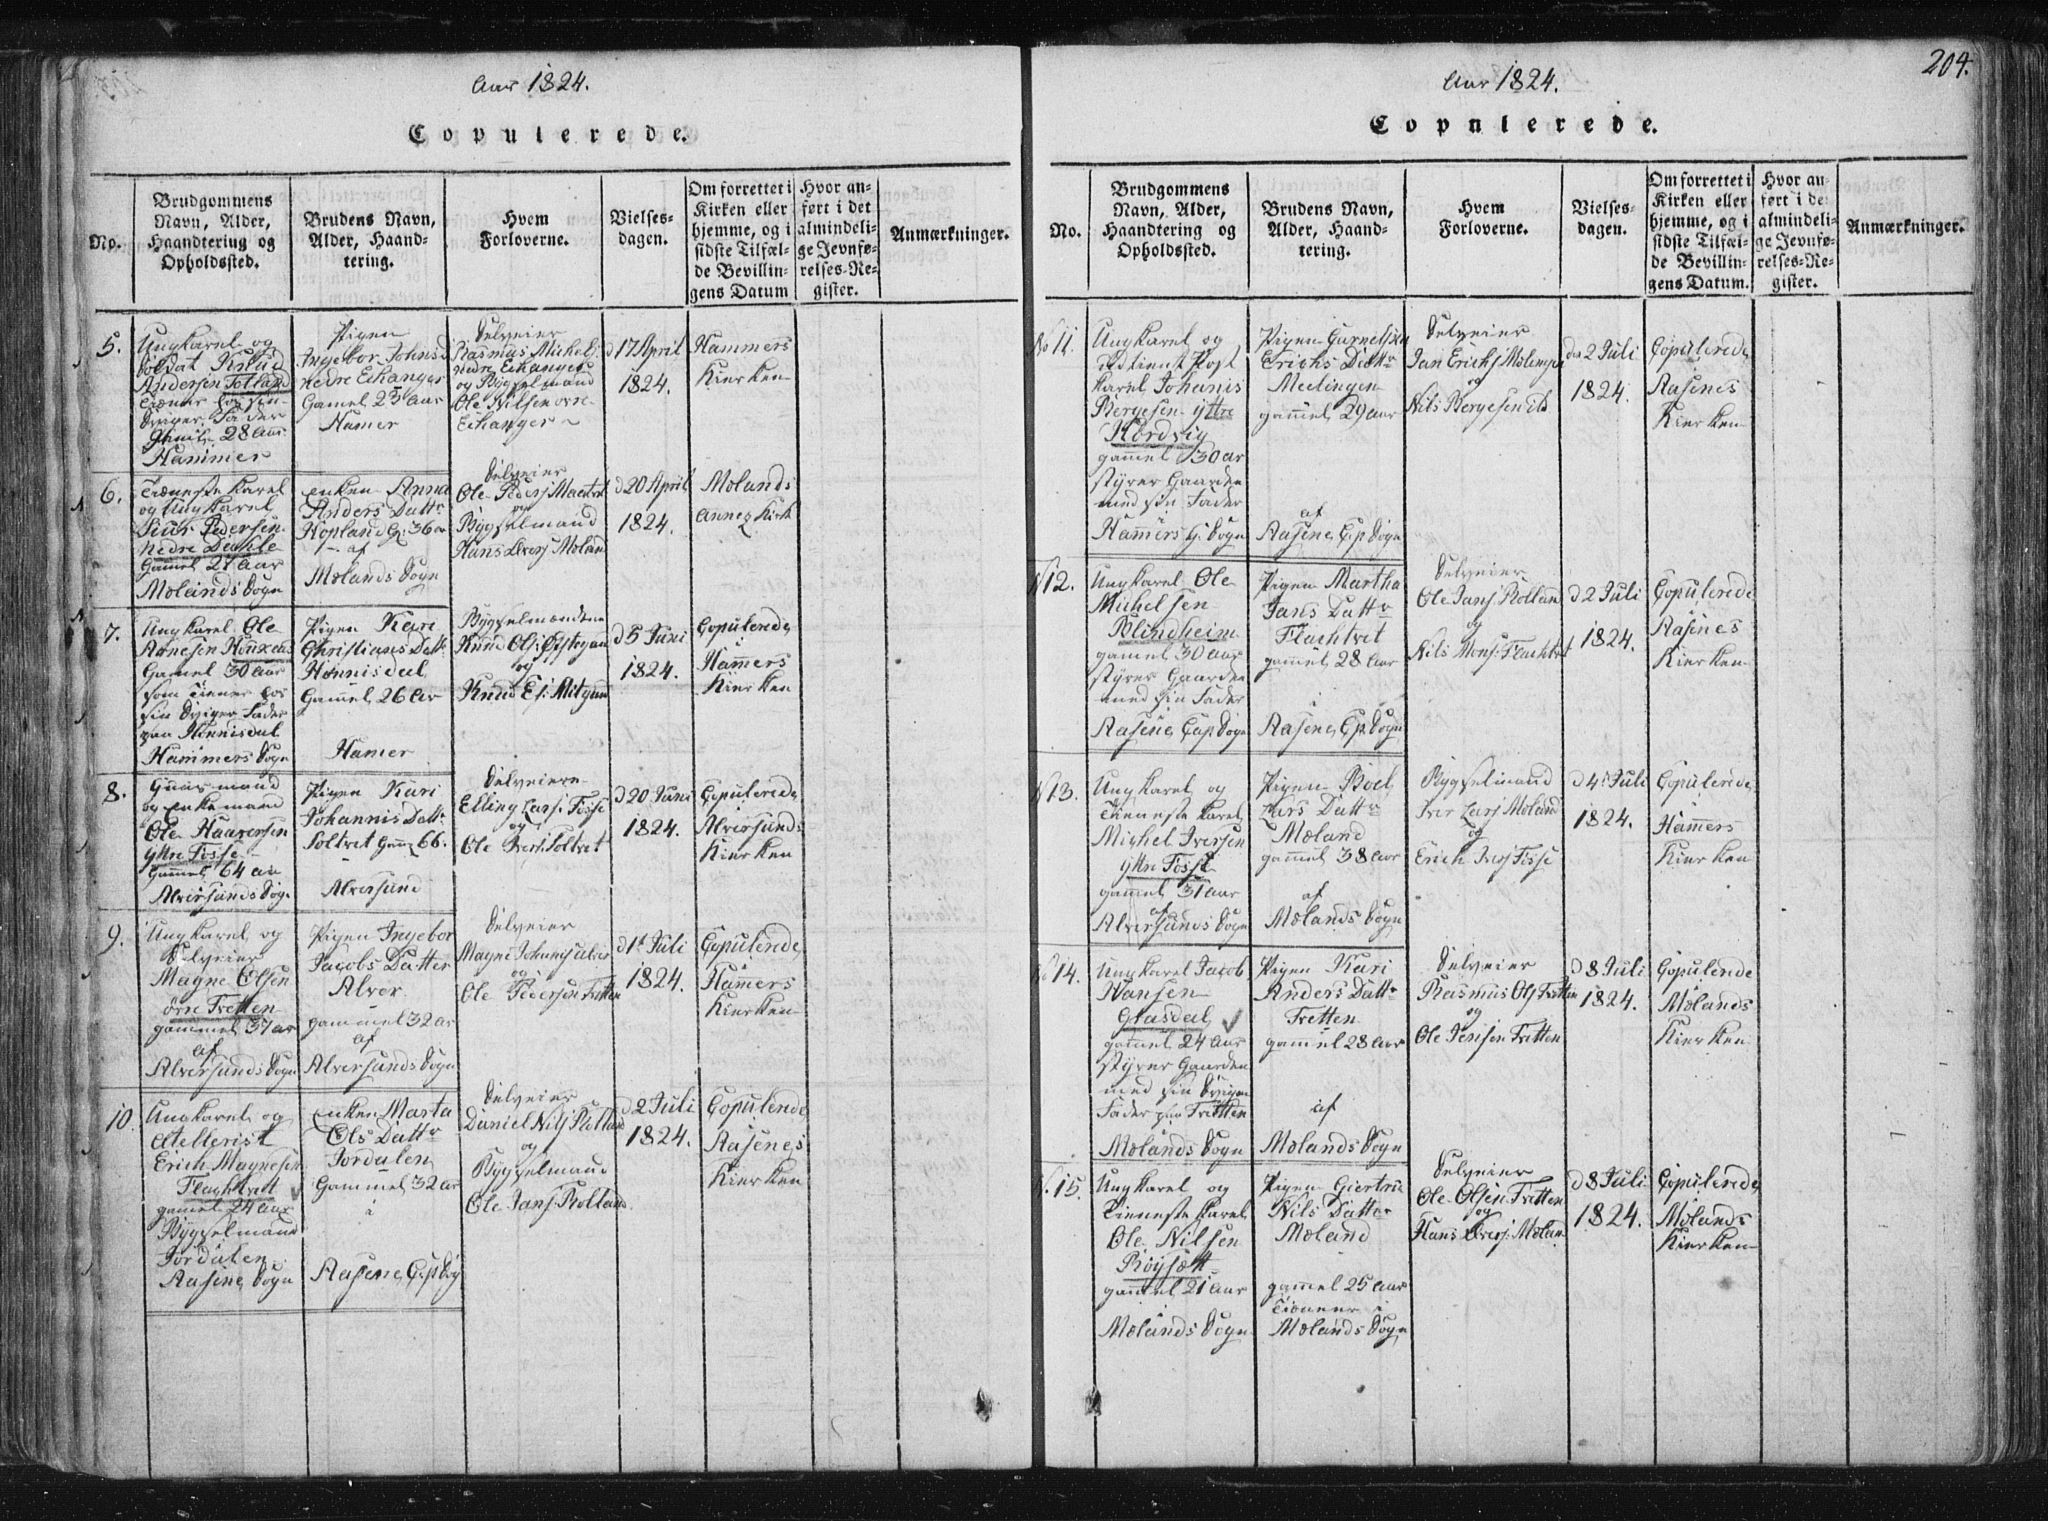 Aar 1824.
Copulerede.
No.
Brudgommens
Navn, Alder,
Haandtering og
Opholdssted.
Brudens Navn,
Alder, Haand-
tering.
Hvem
Forloverne.
Vielses-
dagen.
Om forrettet i
Kirken eller
hjemme, og i
sidste Tilfæl-
de Bevillin-
gens Datum
Hvor an-
ført i det
almindeli-
ge Jevnfø-
relses-Re-
gister.
Anmærkninger.
5.
Ungkarel og
Soldat Knud
Andersen Totland
28 Aar
Hammer
Pigen
Ingebor Johns D
nedre Eikanger
Gamel 23 Aar
Hamer
Selveier
Rasmus Michels
nedre Eikanger
og Bygselmand
Ole Nilsen
Eikanger
d 17 April
1824.
Hammers
Kierken
6.
Tieneste Karel
og Ungkarel
Siur Pedersen
nedre Dahle
Gamel 27 Aar
Molands Sogn
enken Anna
Anders Datt
Hopland G: 36 ar
af
Molands Sogn
Selveier
Ole Peders
og
Bygselmand
Hans Ivers Moland
d 20 April
1824.
Molands
annex Kirk
7.
Ungkarel Ole
Arnesen
Gamel 30 aar
som tiener hos
sin Sviger Fader
paa Honnisdal
Hammers Sogn
Pigen Kari
Christians Datt
Honnisdal
Gamel 26 Ar
Hamer
Bygselmændene
Knud Ols:
og
Knud
d 5 Juni
1824.
Copulerede
Hamers
Kierken
8.
Guarmand
og enkemand
Ole Haaversen
Yttre Fosse
Gamel 64 ar
Alversunds Sog.
Pigen Kari
Johannis Datt
Soltvet Gam 66.
Alversund
Selveiere
Elling Lars: Fosse
og
Ole Ivers: Soltvet
d 20 Juni
1824.
Copulerede
Alversunds
Kierken
9.
Ungkarel og
Selveier
Magne Olsen
øvre Fretten
gammel 37 ar
af
Alversunds Sogn
Pigen Ingebor
Jacobs Datter
Alver
gammel 32 ar
af
Alversunds Sogn
Selveier
Magne Johanns Alver
og
Ole Pedersen Fretten
d 1 Juli
1824.
Copulerede
Hamers
Kierken
10.
Ungkarel og
Atellerist
Erich Magnesen
Flachtvett
gamel 24 Aar
Bygselmand
Jordalen
Aasene Sogn
enken Marta
Ols Datt
Jordalen
Gammel 32 ar
i
Aasene Cap Sog
Selveier
Daniel Nils Rolland
og
Bygselmand
Ole Jans Rolland
d 2 Juli
1824.
Copulerede
Aasenes
Kierken
204.
Aar 1824.
Copulerede.
No.
Brudgommens
Navn, Alder,
Haandtering og
Opholdssted.
Brudens Navn,
Alder, Haand-
tering.
Hvem
Forloverne.
Vielses-
dagen.
Om forrettet i
Kirken eller
hjemme, og i
sidste Tilfæl-
de Bevillin-
gens Datum.
Hvor an-
ført i det
almindeli-
ge Jevnfø-
relses-Re-
gister.
Anmærkninger.
No 11.
Ungkarel og
udtient
Karel Johanis
Bergesen yttre
Hordvig
gammel 30 ar
styrer Gaarden
med sin Fader
i
Hamers H: Sogn
Pigen
Erichs Datt
Mellingen
gammel 29 aar
af
Aasene Cp Sogn
Selveier
Jan Erichs
og
Nils Bergesen ib
den 2 Juli
1824.
Copulerede
Aasenes
Kierken
N 12.
Ungkarel Ole
Michelsen
Blindheim
gammel 30 aar
styrer Gaarden
med sin Fader
i
Aasene Cap Sogn
Pigen Martha
Jans Datt
Flachtvet
gammel 28 Aar
i
Aasene Cp. Sogn
Selveier
Ole Jans Rolland
og
Nils Mons: Flachtvet
d 2 Juli
1824.
Copulerede
Aasenes
Kierken
N 13.
Ungkarel og
Tieneste Karel
Michel Iversen
Yttre Fosse
gammel 31 Aar
af
Alversunds Sogn
Pigen Boel
Lars Datt
Moland
gammel 38 aar
af
Molands Sogn
Bygselmand
Iver Lars Moland
og
Erich Ivers Fosse
d 4 Juli
1824.
Copulerede
Hamers
Kierken
No 14.
Ungkarel Jacob
Hansen
Glasdal
gamel 24 Aar
styrer Gaarden
med sin Sviger
Fader paa Fretten
i
Molands Sogn
Pigen Kari
Anders Datt
Fretten
gammel 28 aar
af
Molands Sogn
Selveier
Rasmus Ols Fretten
og
Ole Jensen Fretten
d 8 Juli
1824.
Copulerede
Molands
Kierken
N. 15.
Ungkarel og
Tieneste Karel
Ole Nilsen
Röysæt
gammel 21 aar
i
Molands Sogn
Pigen Giertru
Nils Datter
Moland
gammel 25 aar
Tiener i
Molands Sogn
Selveier
Ole Olsen Fretten
og
Hans Ivers: Moland
d 8 Juli
1824.
Copulerede
Molands
Kierken